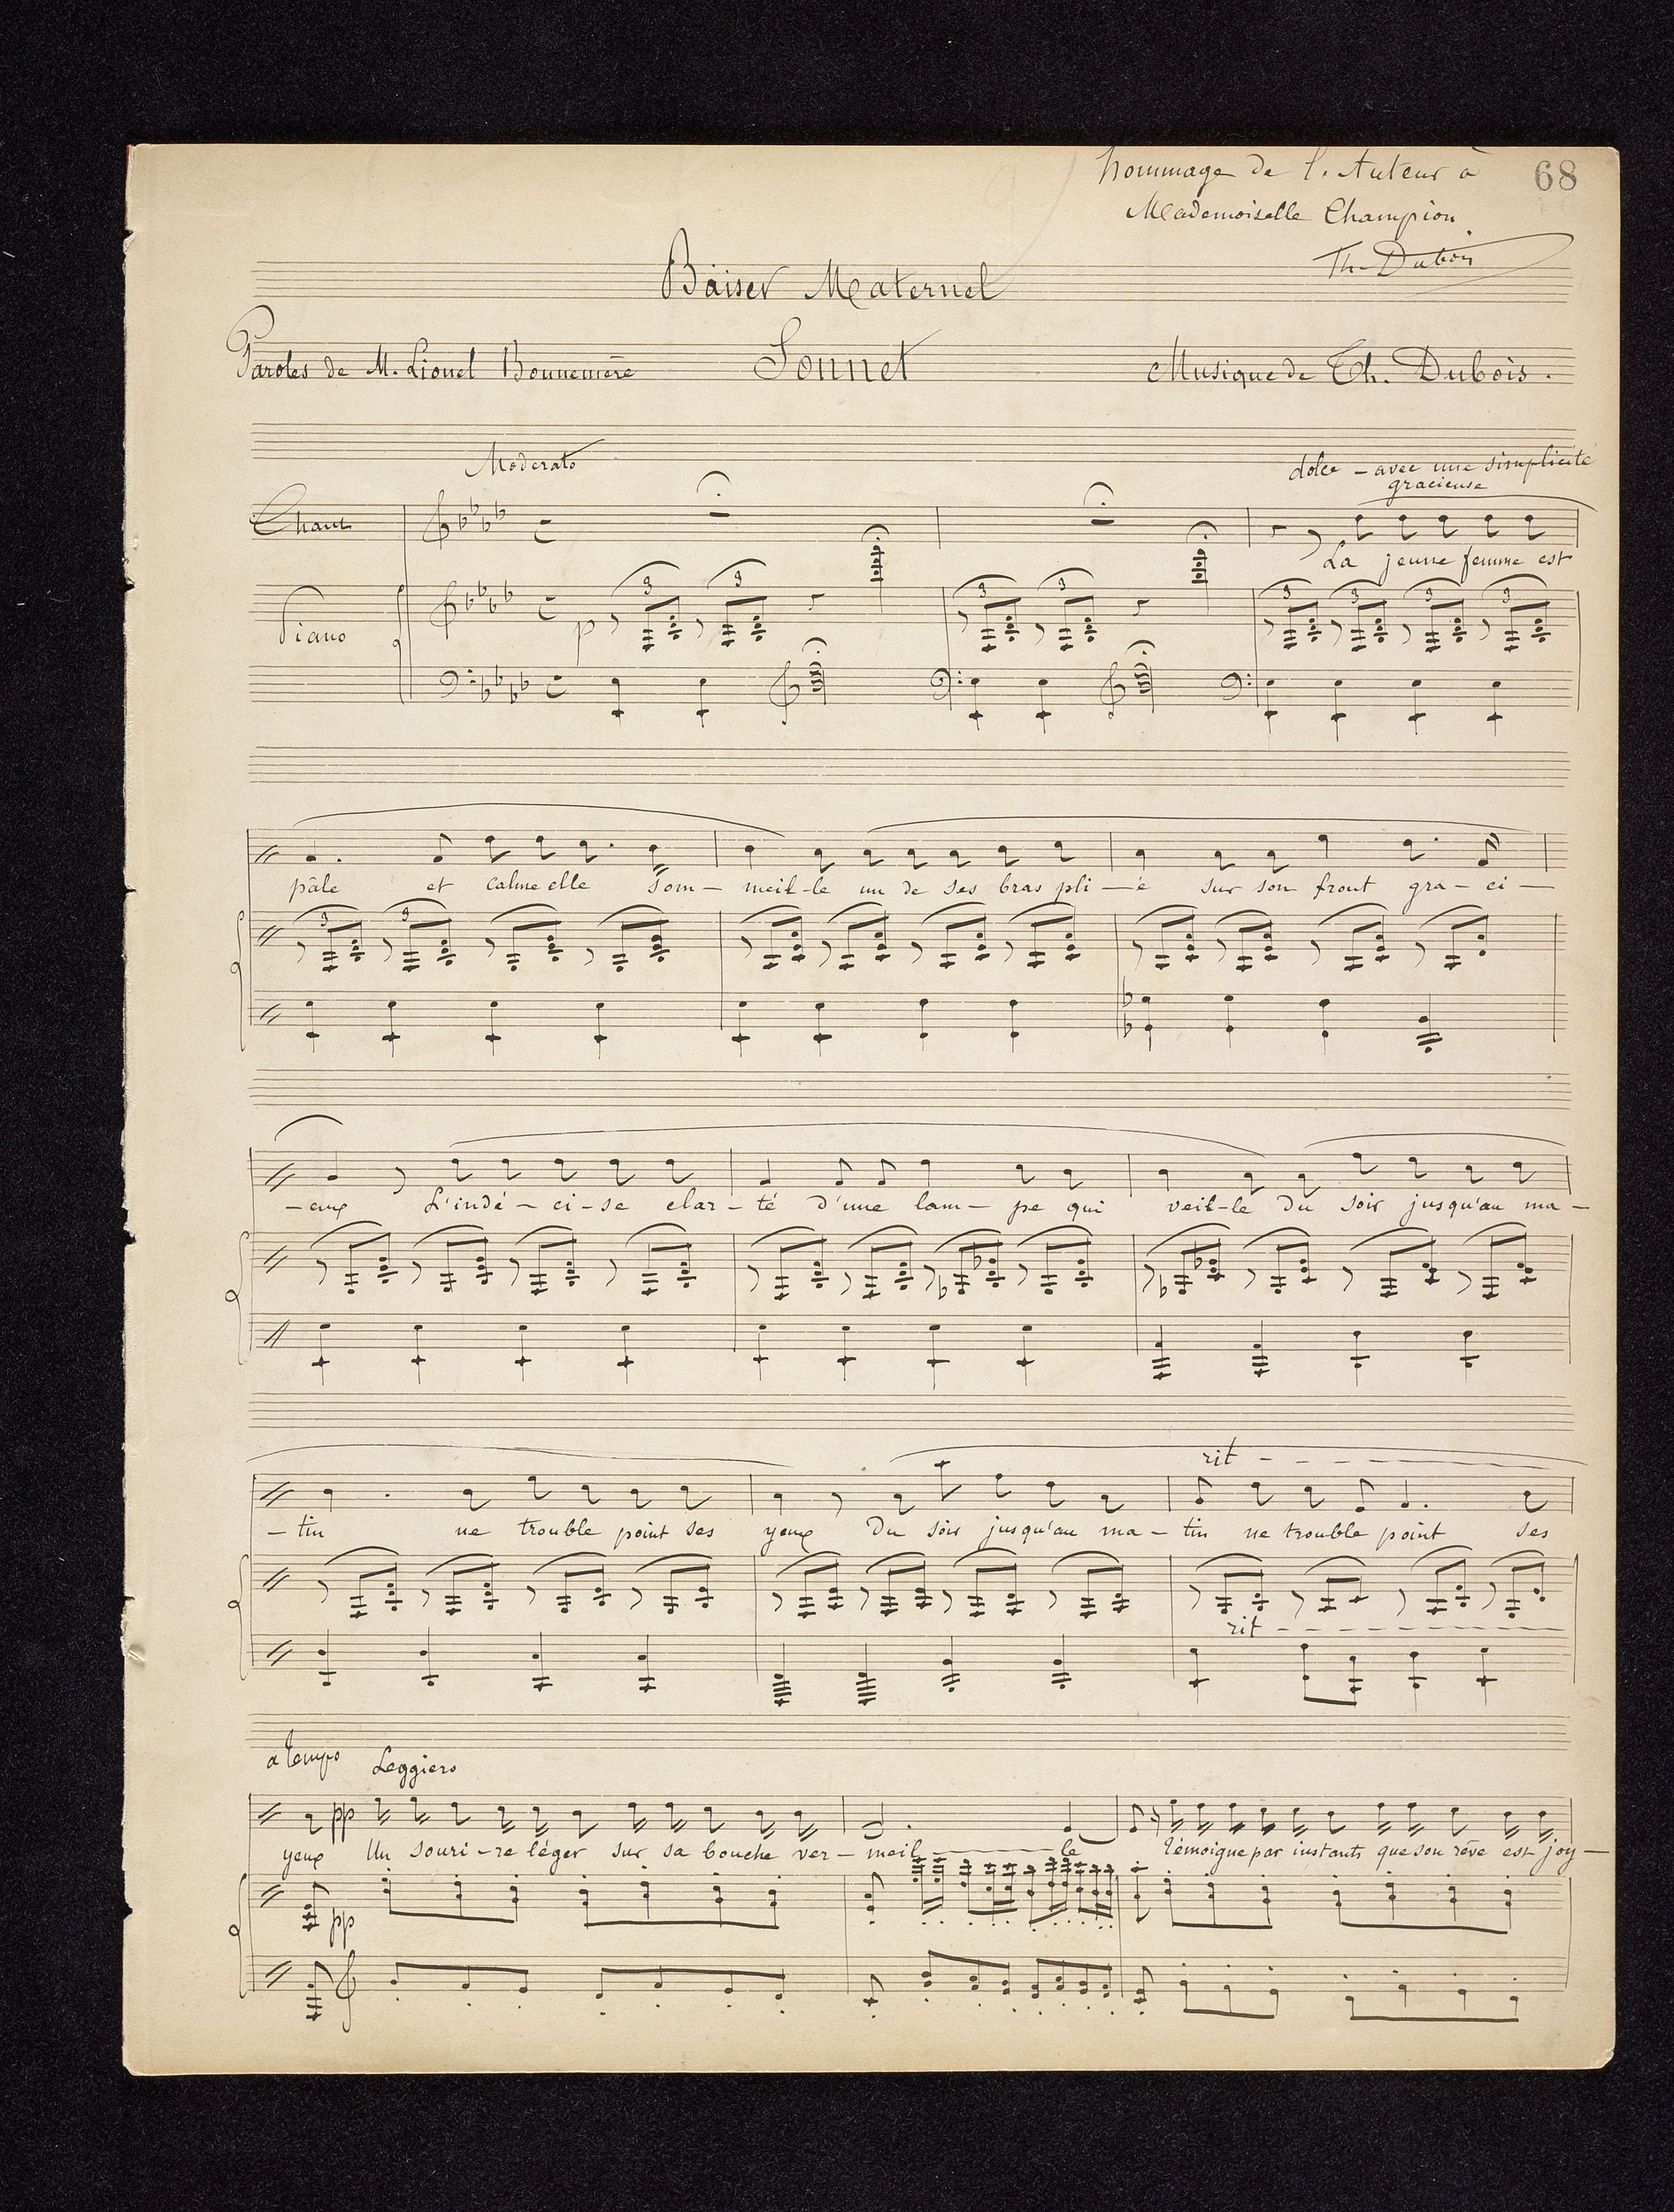 hommage de l'Auteur à
68
Mademoiselle Champion
Th. Dubois
Baiser Maternel
Paroles de M. Lionel Bonnemère
Sonnet
Musique de Th. Dubois.
Moderato
dolce - avec une simplicité
gracieuse
Chant
La jeune femme est
3 3 3 3 3 3 3 3
Piano
p
pâle et calme elle som - meil - le un de ses bras pli - é sur son front gra - ci -
3 3
- eux L'indé - ci - se clar - té d'une lam - pe qui veil - le Du soir jusqu'au ma -
rit
- tin ne trouble point ses yeux Du soir jusqu'au ma - tin ne trouble point ses
rit
a tempo Leggiero
pp
yeux Un souri - re léger sur sa bouche ver - meil - le Témoigne par instants que son rêve est joy -
pp